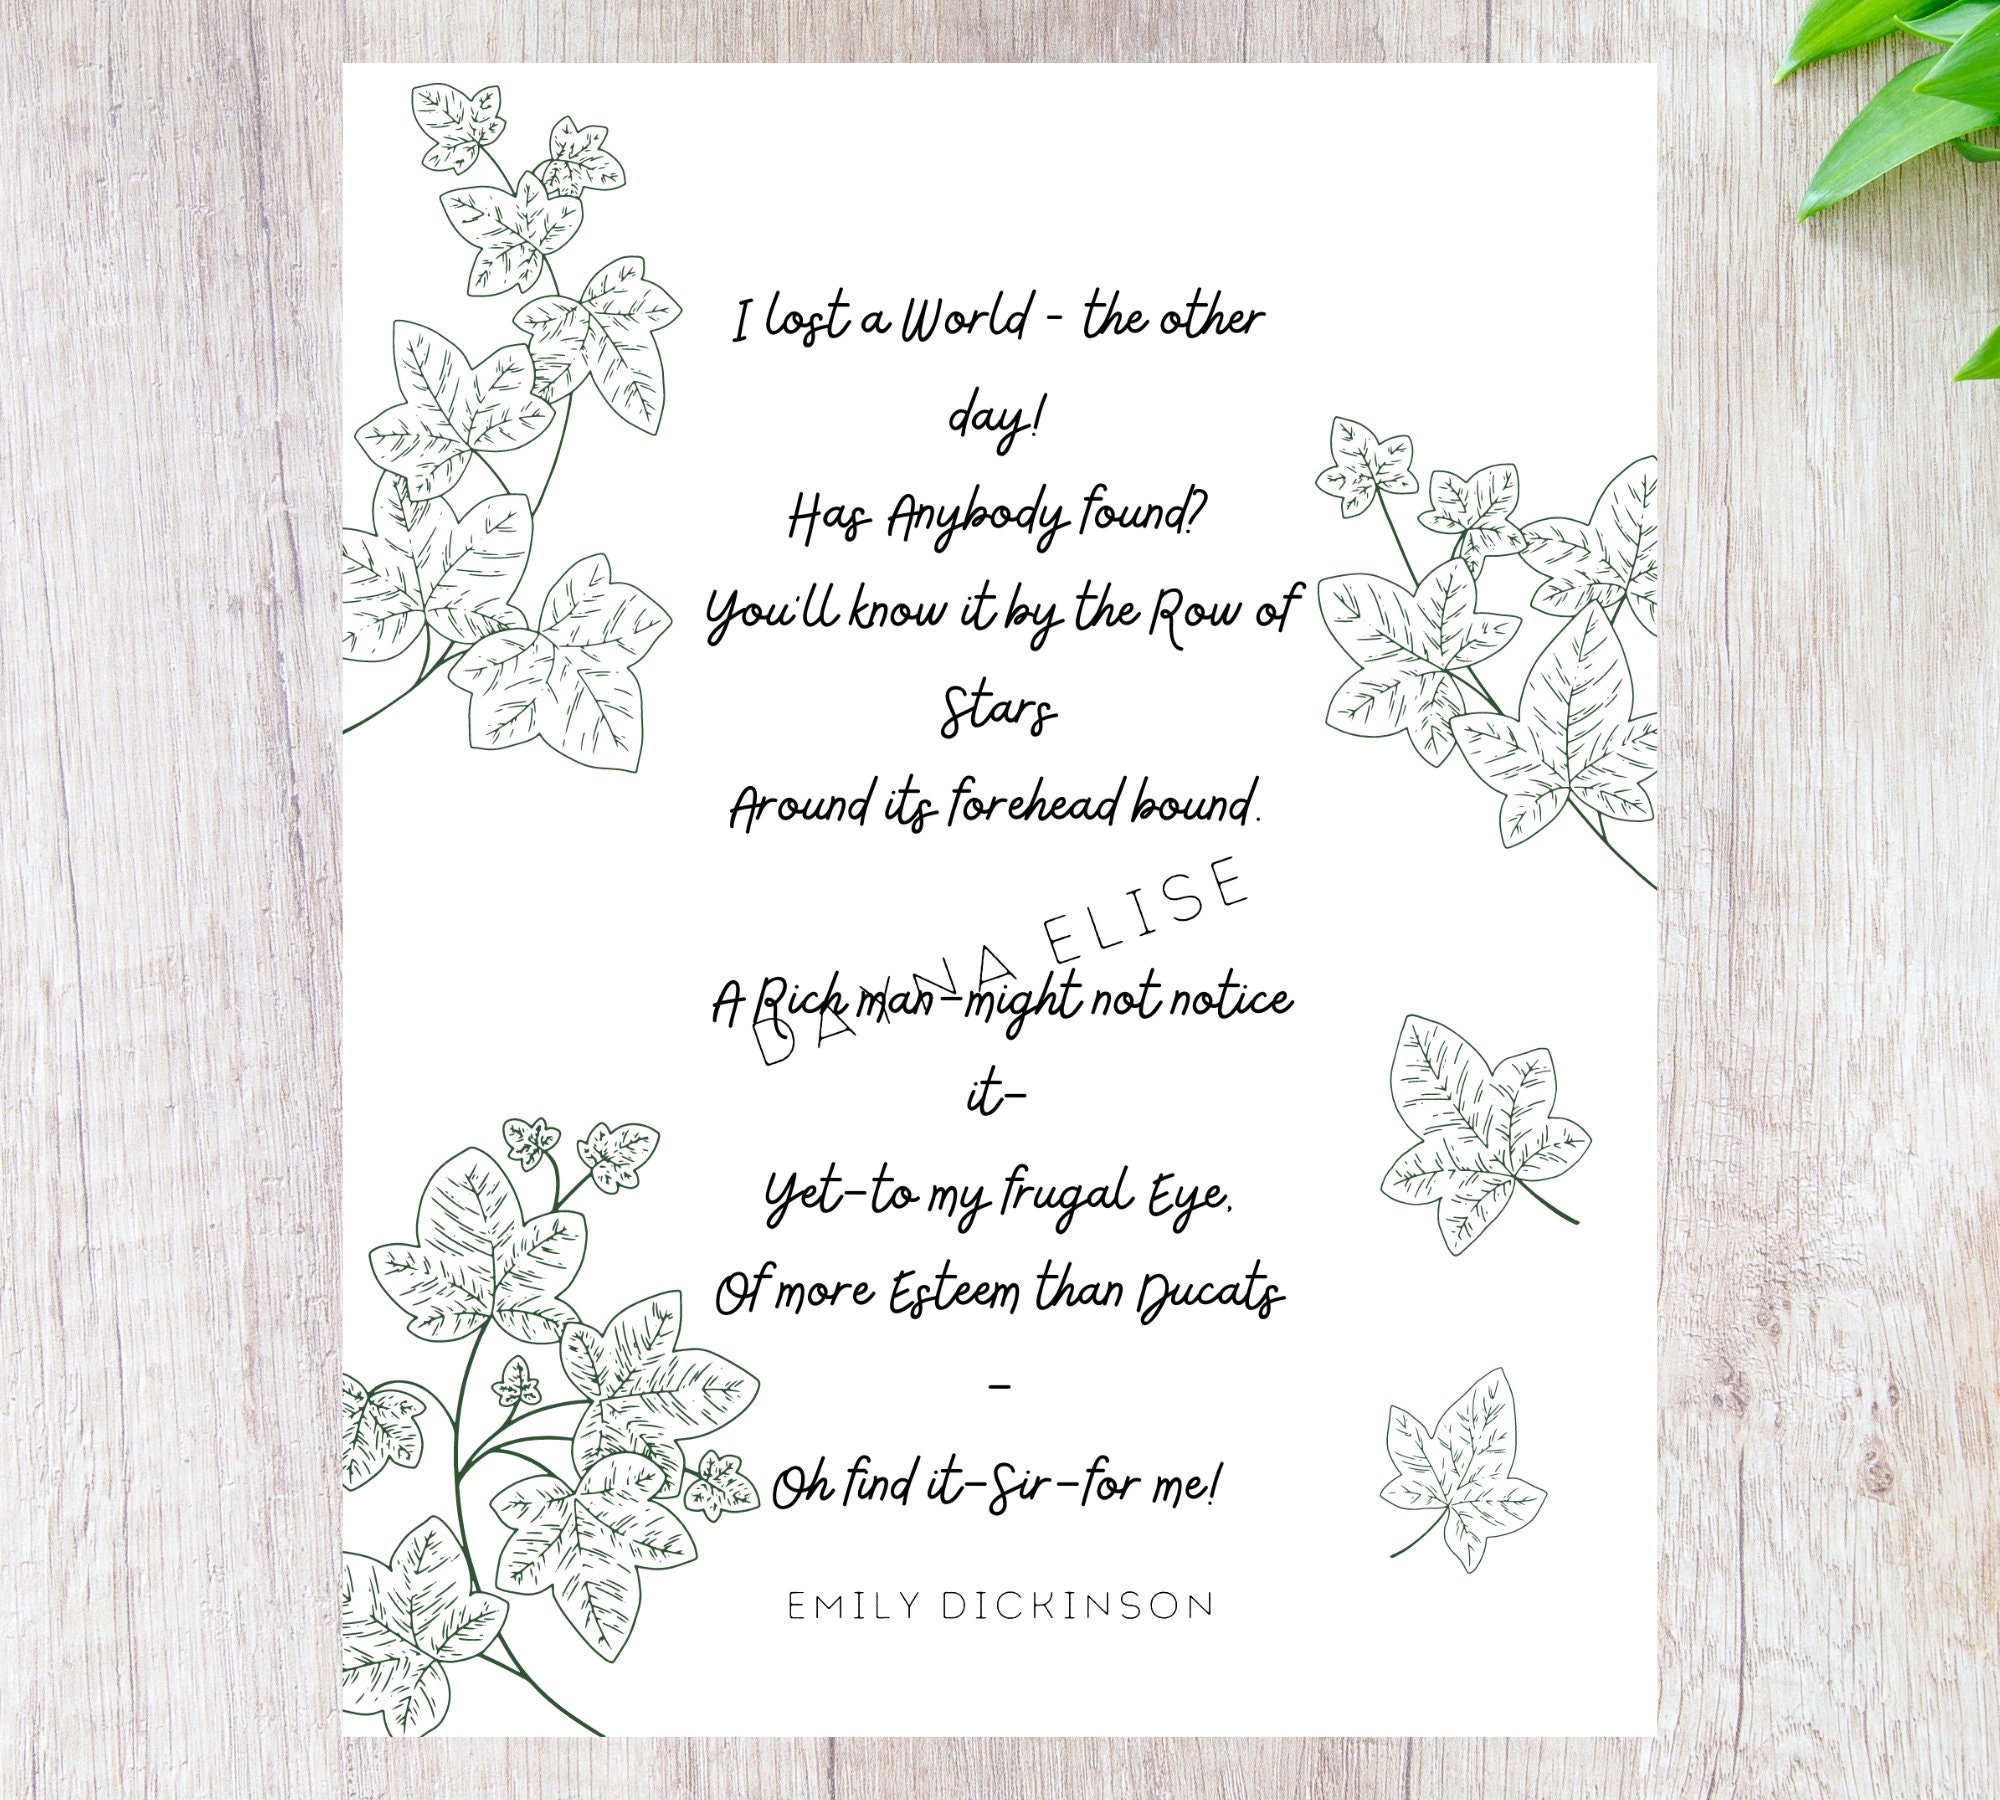 I lost a World - the other
day!
Has Anybody found?
You'll know it by the Row of
Stars
Around its forehead bound.
DAYNA ELISE
A Rich man-might not notice
it-
Yet-to my frugal Eye,
Of more Esteem than Ducats
-
Oh find it-Sir-for me!
EMILY DICKINSON